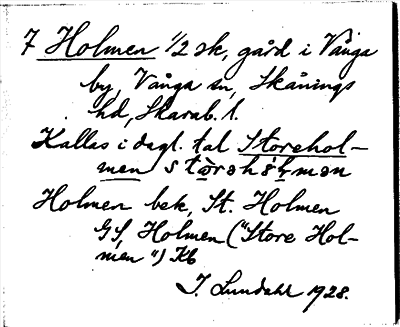 7 Holmen 1/2 sk, gård i Vånga
by, Vånga sn, Skånings
hd, Skarab. l.
Kallas i dagl. tal Storehol-
men
Holmen bek, St. Holmen
GS, Holmen ("Store Hol-
men") Kb
I. Lundahl 1928.